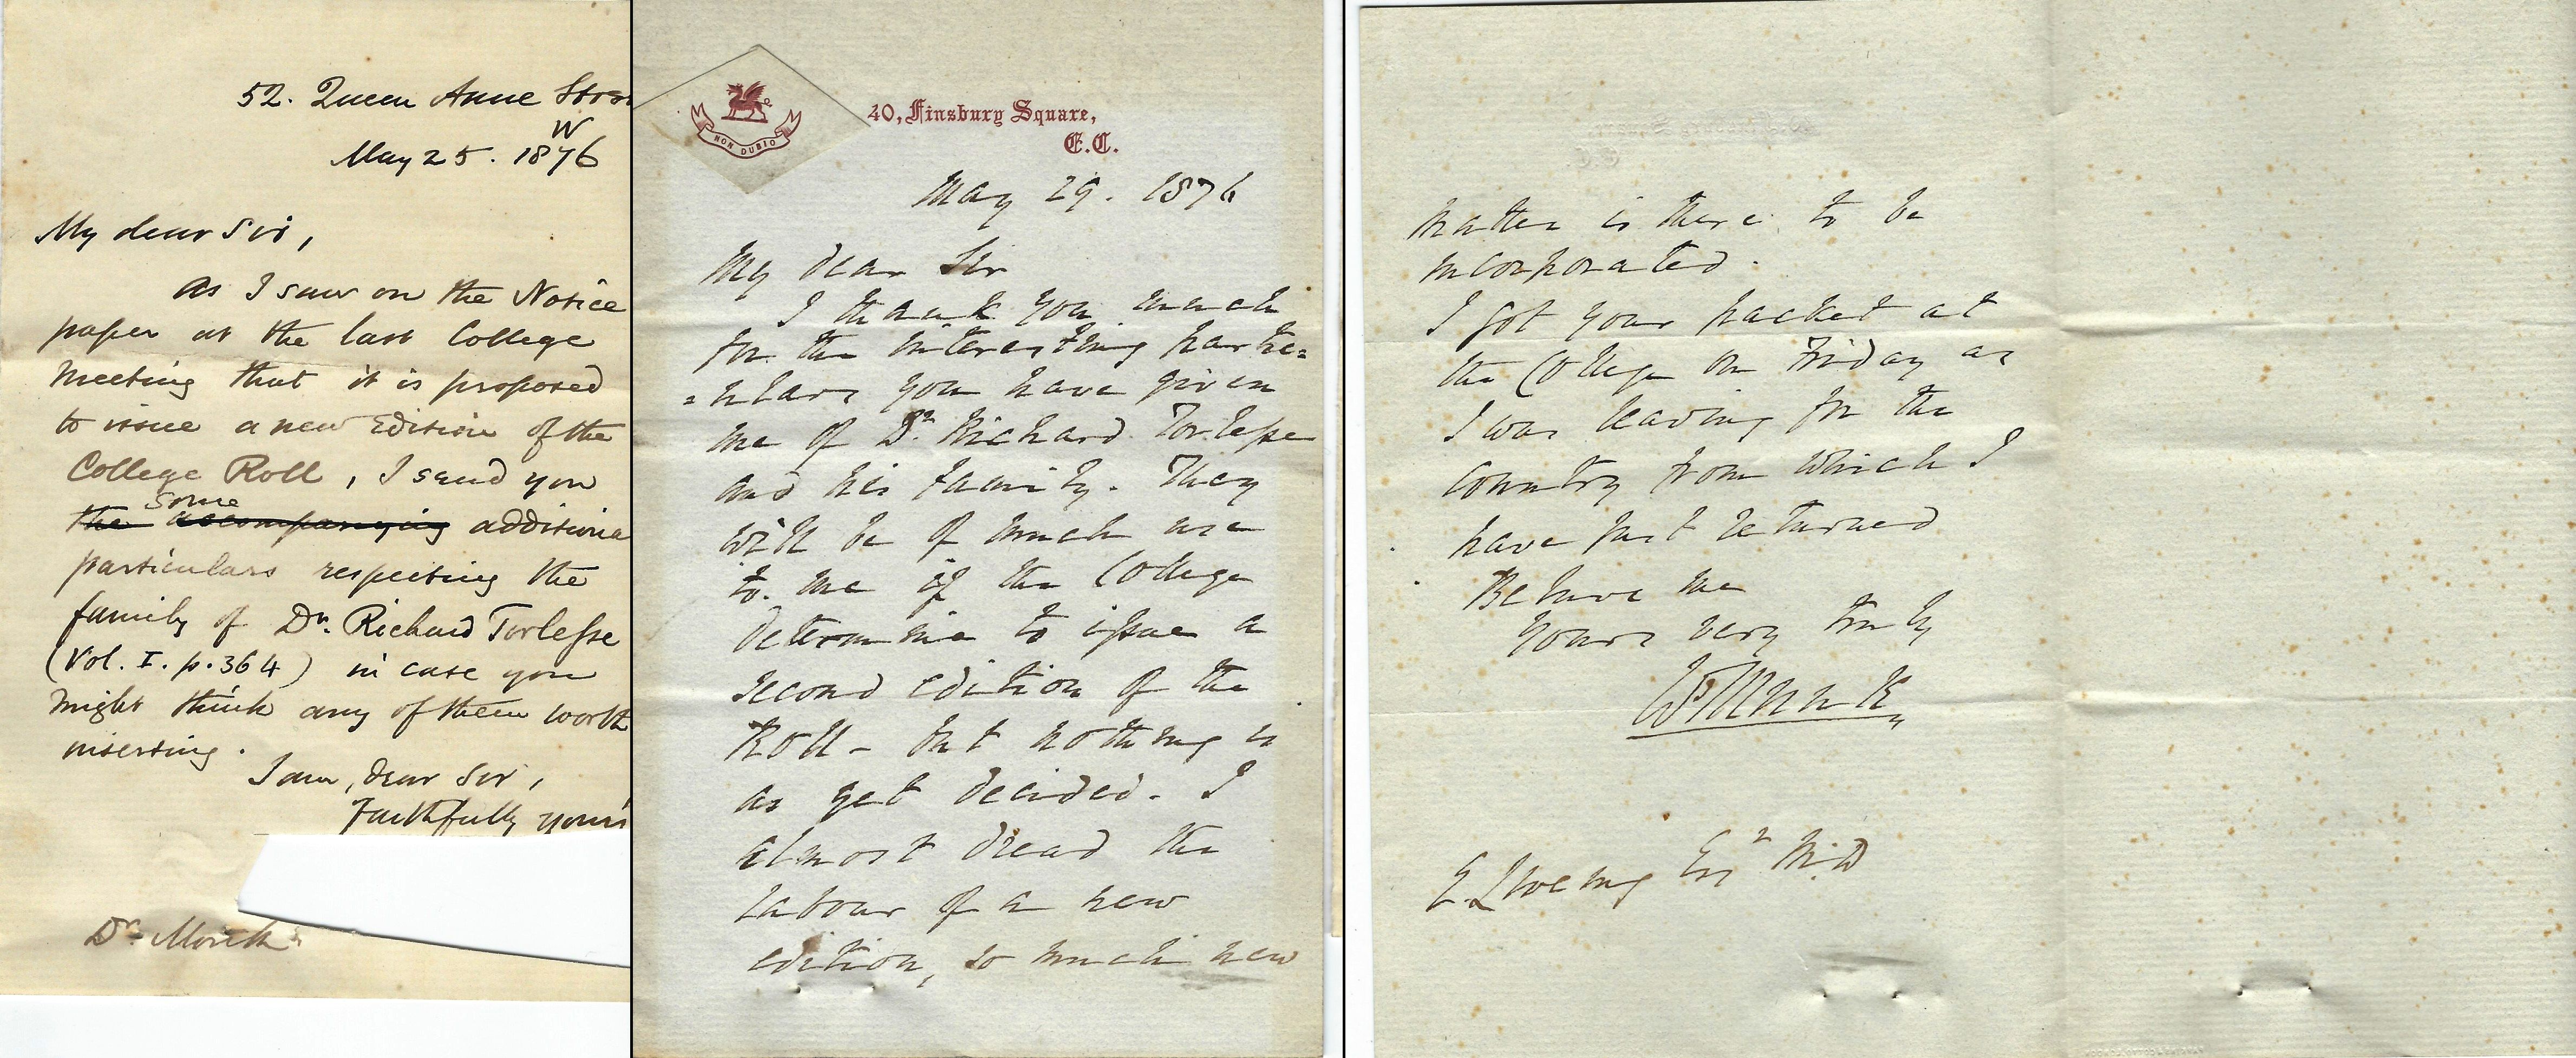 52. Queen Anne Stre
W
May 25. 1876
My dear Sir,
As I saw on the Notice
paper at the last College
Meeting that it is proposed
to issue a new Edition of the
College Roll, I send you
some
the accompanying additiona
particulars respecting the
family of Dr. Richard Torlesse
(Vol. I. p. 364) in case you
might think any of them worth
inserting.
I am, dear Sir,
Faithfully yours
Dr. Munk
NON DUBIO
40, Finsbury Square,
E.C.
May 29. 1876
My dear Sir
I thank you much
for the interesting partic=
=ulars you have given
me of Dr. Richard Torlesse
and his family. They
will be of much use
to me if the College
determine to issue a
second edition of the
Roll - but nothing is
as yet decided. I
almost dread the
labour of a new
edition, so much new
matter is there to be
incorporated.
I got your packet at
the College on Friday as
I was leaving for the
country from which I
have just returned
Believe me
Yours very truly
W Munk
E. Liveing Esqr M.D